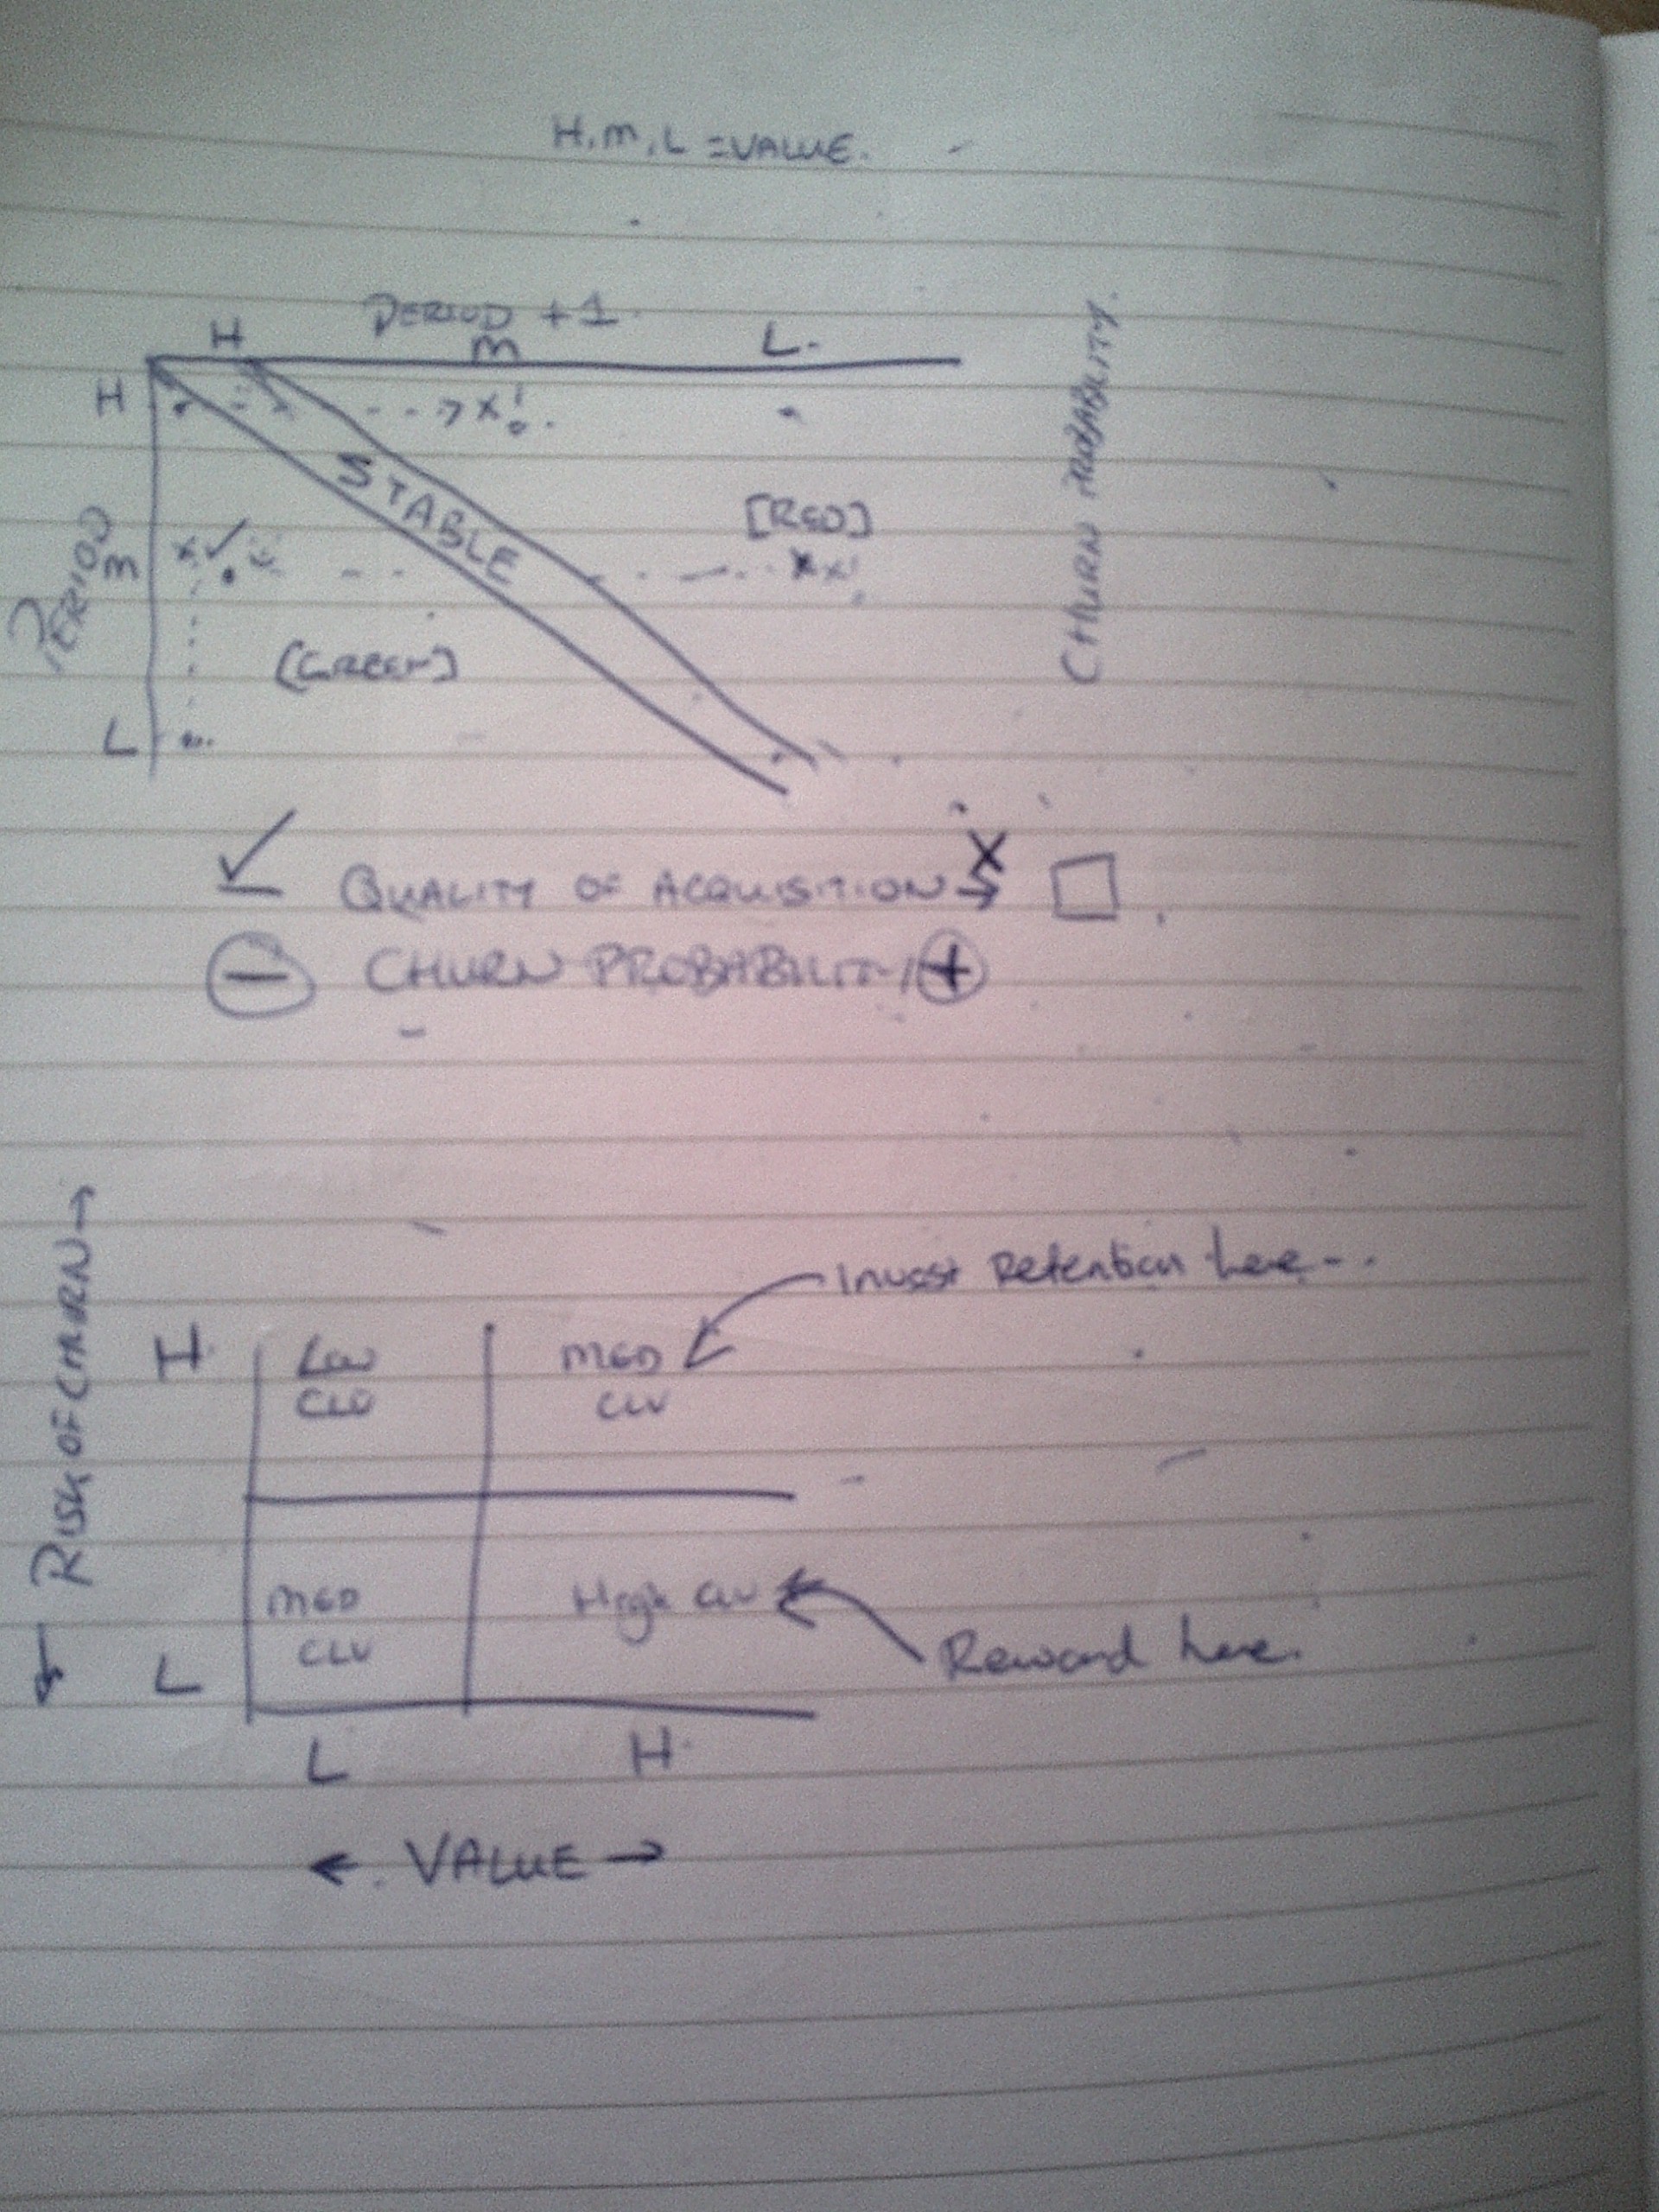 H, M, L = VALUE.
PERIOD + 1
H M L.
H
STABLE
[RED]
PERIOD
M
[GREEN]
L
CHURN PROBABILITY.
QUALITY OF ACQUISITION
CHURN PROBABILITY
RISK OF CHURN
Invest Retention here...
H
Low
CLV
MED
CLV
MED
CLV
High CLV
Reward here.
L
L H
VALUE